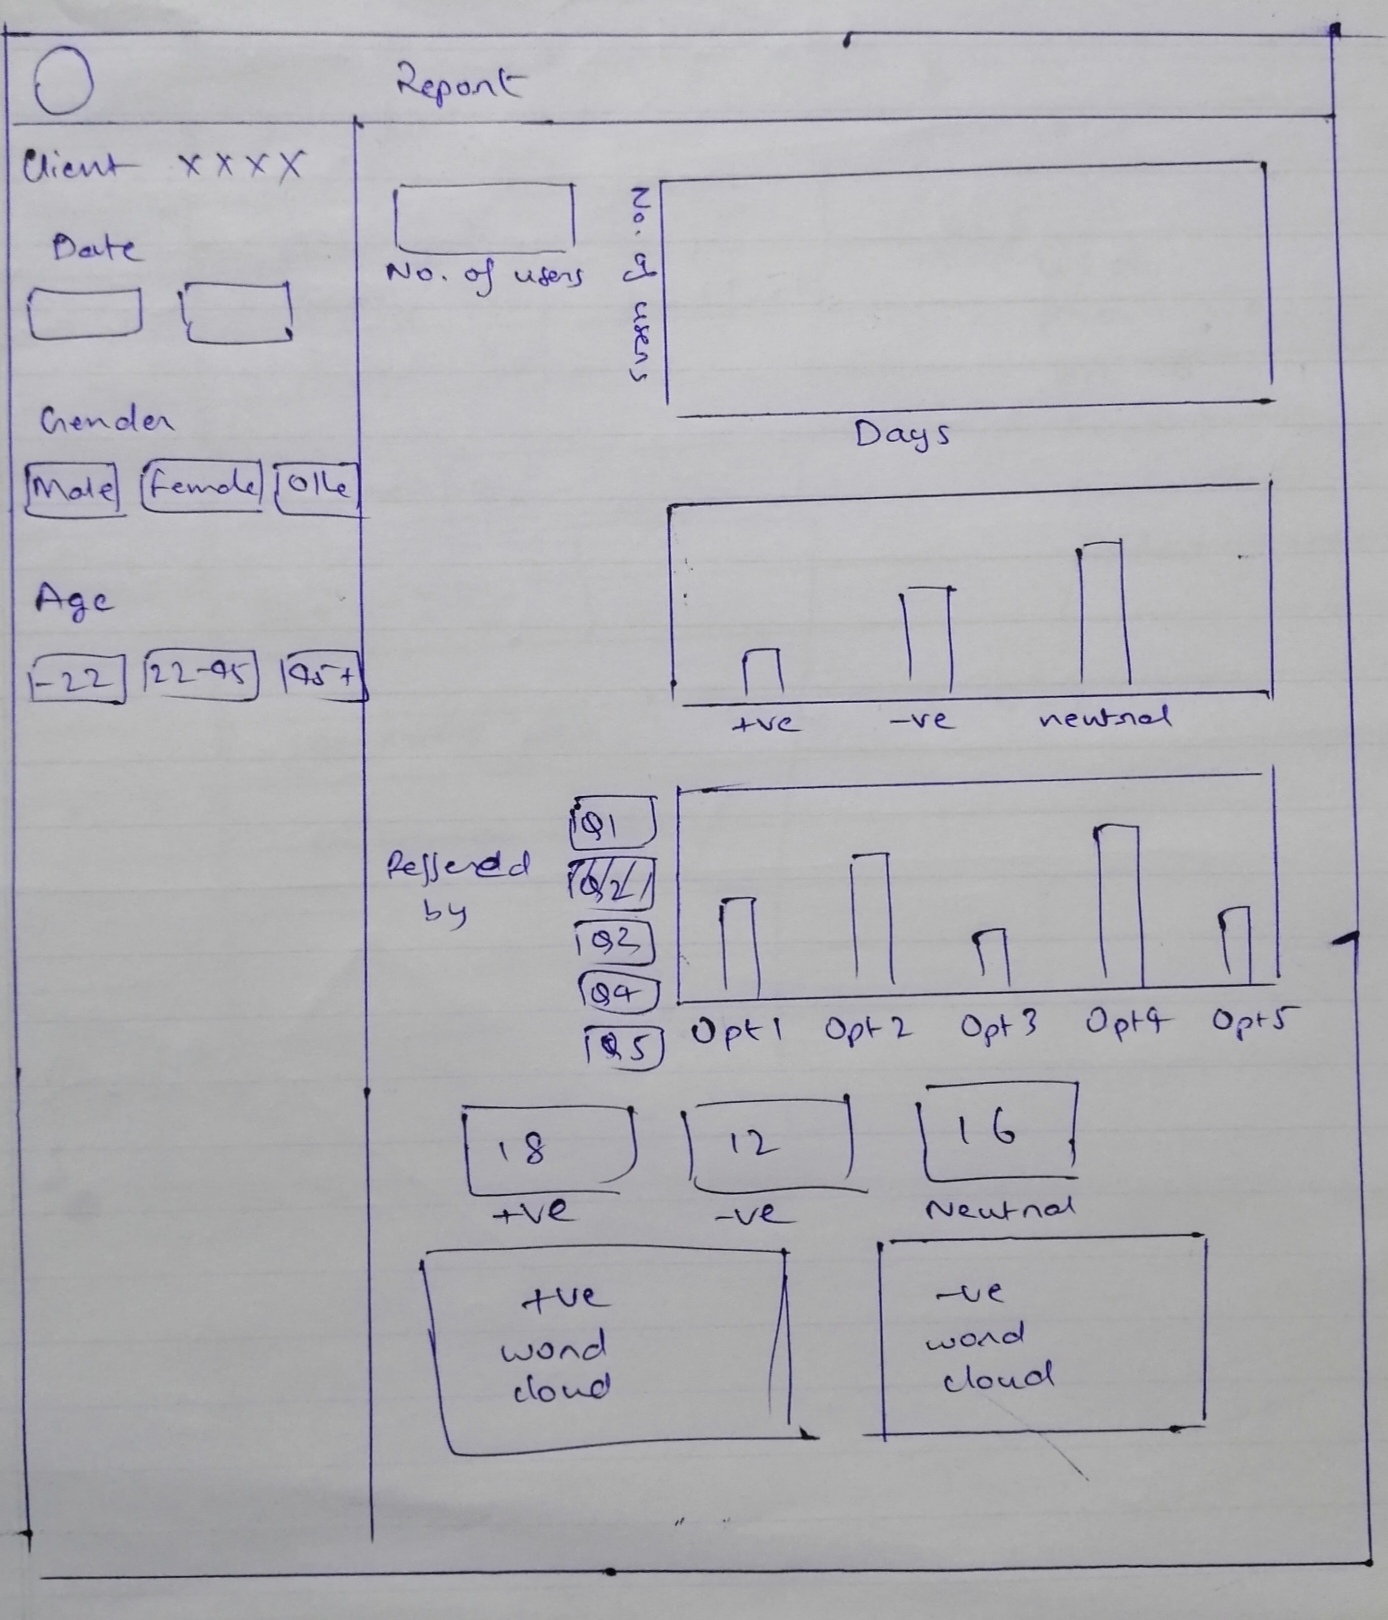 Report
Client XXXX
Date
Gender
Male Female
Age
-22 22-45 45+
No. of users
No. of users
Days
+ve -ve neutral
Reffered
by
Q1
Q2
Q3
Q4
Q5
Opt 1 Opt 2 Opt 3 Opt 4 Opt 5
18 12 16
+ve -ve Neutral
+ve
word
cloud
-ve
word
cloud